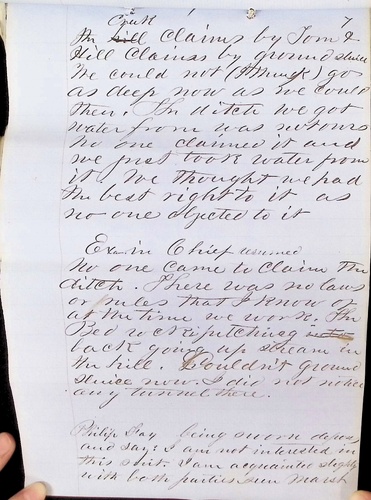 7
Creek
the hill Claims by Tom &
Hill Claims by ground sluice
We could not (I think) go
as deep now as we could
then. The ditch we got
water from was not ours
No one claimed it and
we just took water from
it. We thought we had
the best right to it as
no one objected to it
Ex- in Chief resumed
No one came to claim the
ditch. There was no laws
or rules that I know of
at the time we work. The
Bed rock pitching
back going up stream in
the hill. Couldn't ground
sluice now. I did not notice
any tunnel there.
Philip Fay being sworn deposes
and says I am not interested in
this suit. I am acquainted slightly
with both parties. Marsh